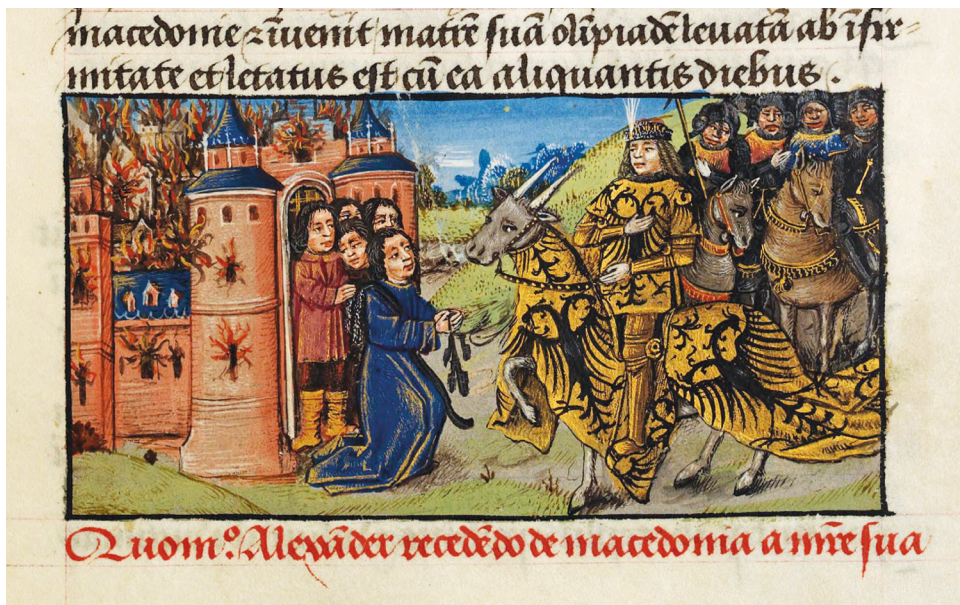 macedonie ⁊ īuenit matrē suā olīpiadē leuatā ab īfir-
mitate et letatus est cū ea aliquantis diebus .
Quomº. Alexāder recedēdo de macedonia a mr̄e sua